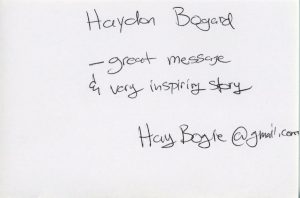 Haydon Bogard
– great message
& very inspiring story
HayBogie@gmail.com